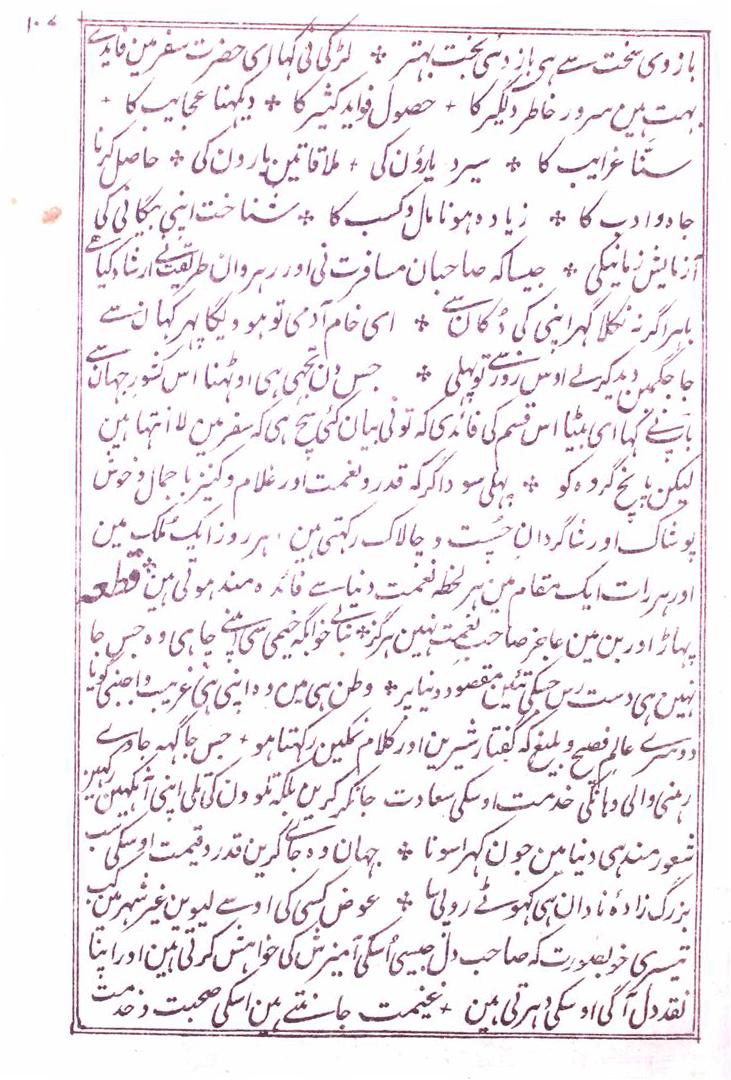 ۱۰۷
بازوی سخت سے ہی بازوئی بخت بہتر ٭ لڑکی نی کہا ای حضرت سفر مین فایدے
بہت ہین سرور خاطر دلگیر کا + حصول فواید کثیر کا ٭ دیکہنا عجایب کا +
سنّنا غرایب کا ٭ سیر دیارؤن کی + ملاقاتین یارون کی ٭ حاصل کرنا
جاہ و ادب کا ٭ زیادہ ہونا مال و کسب کا ٭ شناخت اپنی بیگانی کی
آزمایش زمانیکی ٭ جیسا کہ صاحبان مسافرت نی اور رہروان طریقت نے ارشاد کیا ہے
باہر اگر نہ نکلا گہر اپنی کی دکان سے ٭ ای خام آدمی تو ہو ویگا پہر کہان سے
جا جگمین دید کرلے اوس روز سے تو پہلی ٭ جس دن تجہی ہی اوٹہنا اس کشور جہان سے
باپ نے کہا ای بیٹا اس قسم کی فائدی کہ تونی بیان کئی سچ ہی کہ سفر مین لا انتہا ہین
لیکن پانچ گروہ کو ٭ پہلی سوداگر کہ قدر و نعمت اور غلام و کنیز با جمال و خوش
پوشاک اور شاگردان چست و چالاک رکہتی ہین ، ہر روز ایک ملک مین
اور ہر رات ایک مقام مین ہر لحظہ نعمت دنیا سے فائدہ مند ہوتی ہین ٭ قطعہ
پہاڑ اور بن مین عاجز صاحب نعمت نہین ہرگز ٭ بنالے خوابگہ خیمی سی اپنے چاہی وہ جس جا
نہین ہی دست رس جسکی تئین مقصود دنیا پر ٭ وطن ہی مین وہ اپنی ہی غریب و اجنبی گویا
دوسرے عالم فصیح و بلیغ کہ گفتار شیرین اور کلام نمکین رکہتا ہو + جس جاگہہ جاوے
رہنی والی وہانکی خدمت اوسکی سعادت جانکر کرین بلکہ تلوون کی تلی اپنی آنکہین رکہین
شعور مند ہی دنیا مین جون کہرا سونا ٭ جہان وہ جاے کرین قدر و قیمت اوسکی سب
بزرگ زادہ نادان ہی کہوٹے روپی سا ٭ عوض کسی کی اوسے لیوین غیر شہر مین کب
تیسری خوبصورت کہ صاحب دل جیسی اُسکی آمیزش کی خواہش کرتی ہین اور اپنا
نقد دل آگی اوسکی دہرتی ہین + غنیمت جانتے ہین اسکی صحبت و خدمت